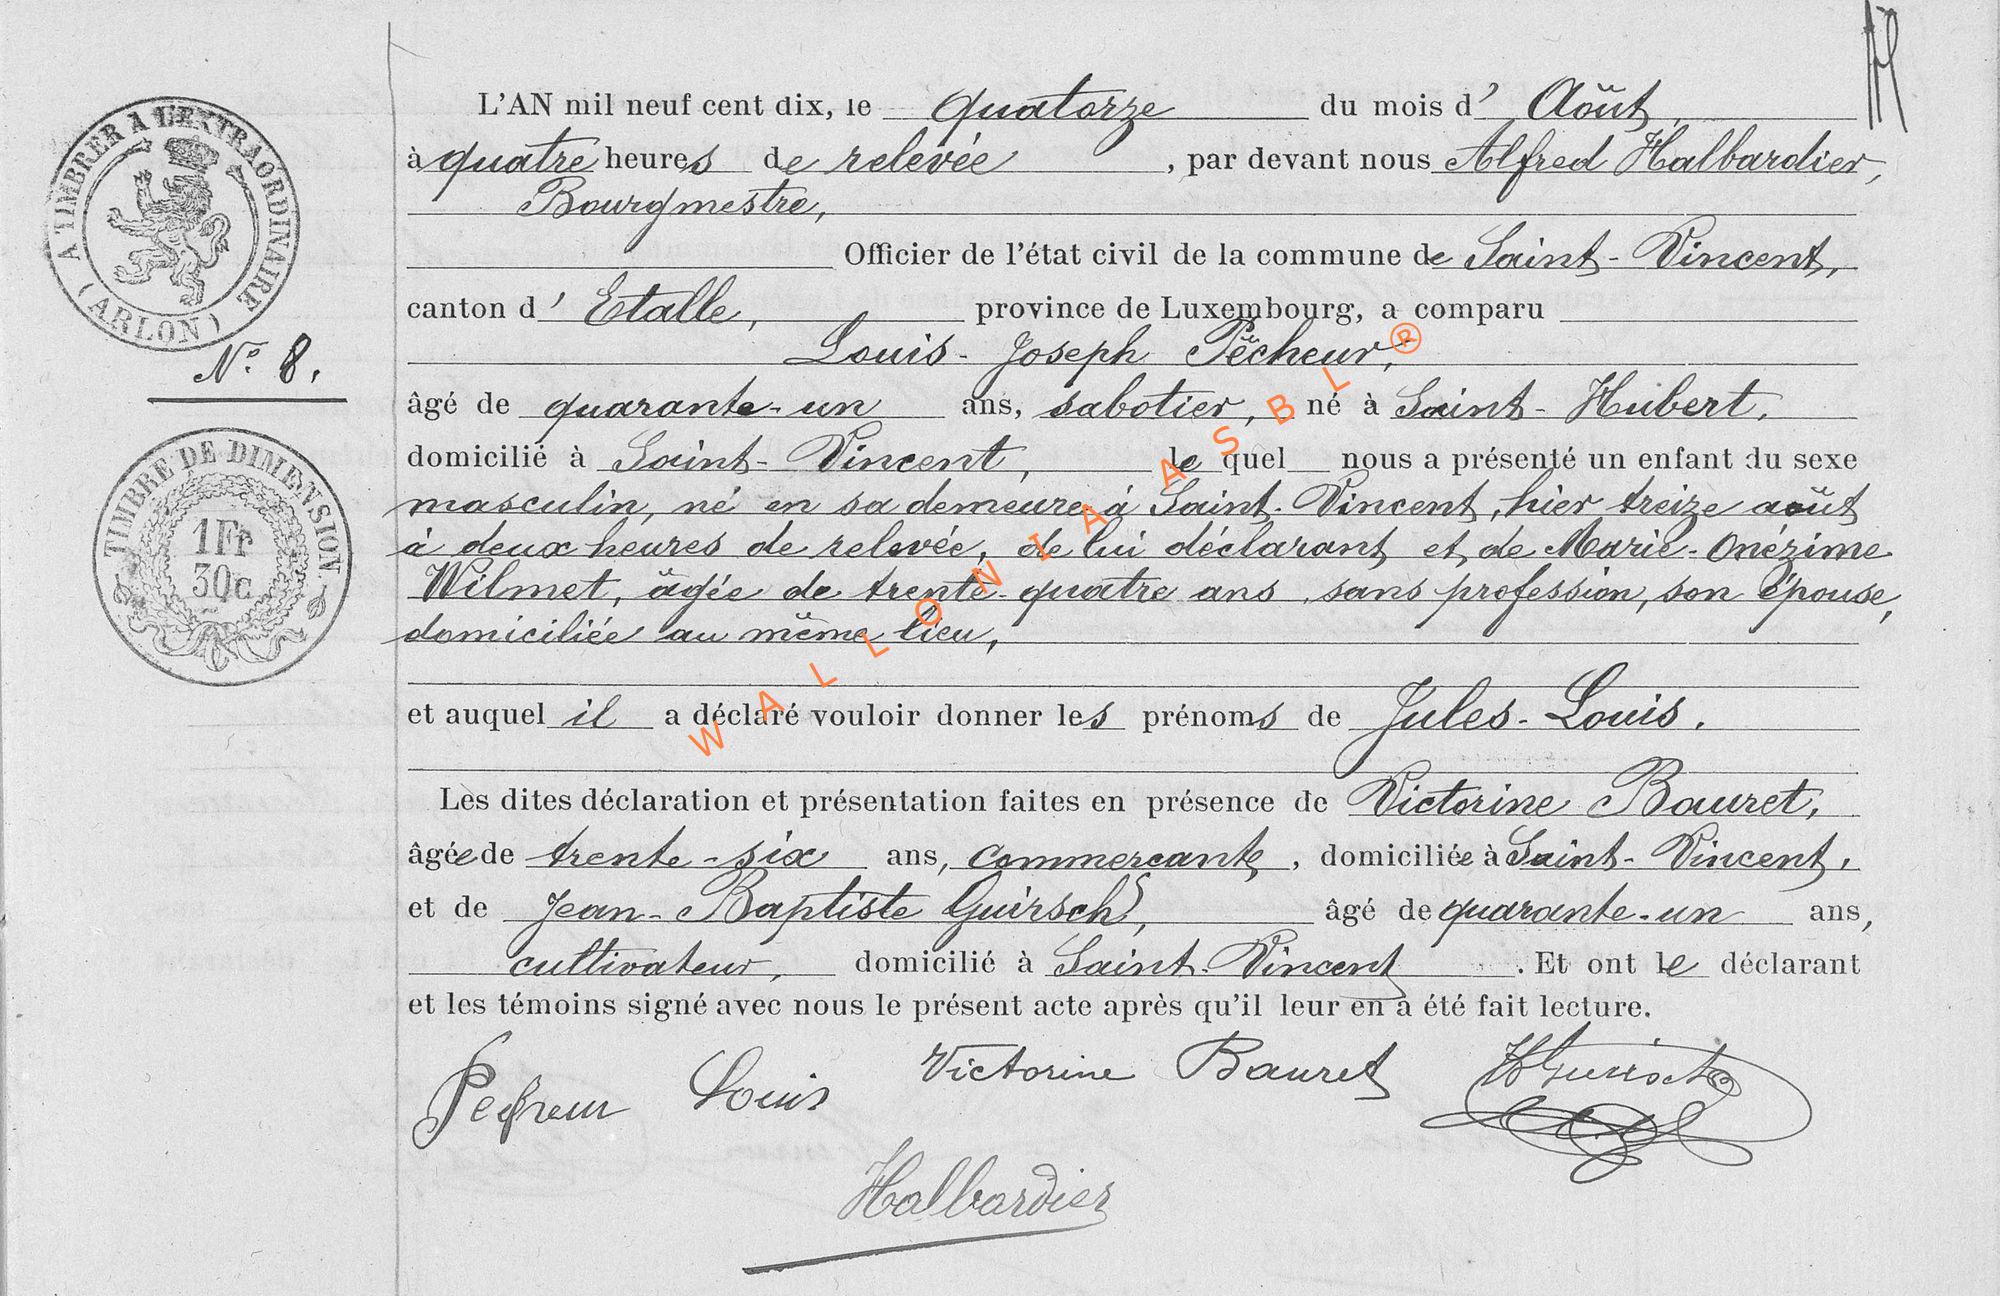 A TIMBRER A L'EXTRAORDINAIRE
(ARLON)
N° 8.
TIMBRE DE DIMENSION
1Fr
30c
L'AN mil neuf cent dix, le quatorze du mois d' Août,
à quatre heures de relevée, par devant nous Alfred Halbardier,
Bourgmestre,
Officier de l'état civil de la commune de Saint-Vincent,
canton d' Etalle, province de Luxembourg, a comparu
Louis-Joseph Pêcheur,
âgé de quarante-un ans, sabotier, né à Saint-Hubert,
domicilié à Saint-Vincent, le quel nous a présenté un enfant du sexe
masculin, né en sa demeure à Saint-Vincent, hier treize août
à deux heures de relevée, de lui déclarant et de Marie-Onézime
Wilmet, âgée de trente-quatre ans, sans profession, son épouse,
domiciliée au même lieu,
et auquel il a déclaré vouloir donner les prénoms de Jules-Louis.
Les dites déclaration et présentation faites en présence de Victorine Bauret,
âgée de trente-six ans, commercante, domiciliée à Saint-Vincent,
et de Jean-Baptiste Guirsch, âgé de quarante-un ans,
cultivateur, domicilié à Saint-Vincent. Et ont le déclarant
et les témoins signé avec nous le présent acte après qu'il leur en a été fait lecture.
Pecheur Louis Victorine Bauret
Halbardier
WALLONIA ASBL®